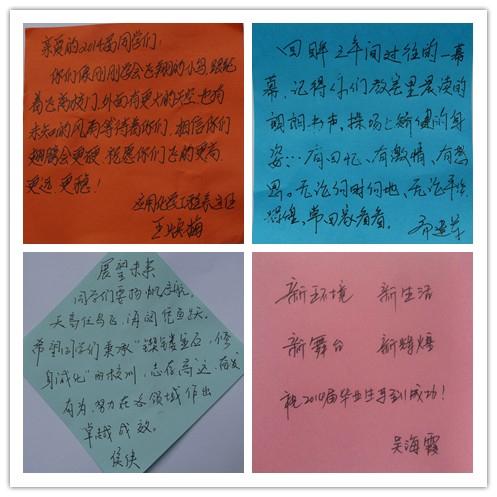 亲爱的2014届同学们：
你们像刚刚学会飞翔的小鸟，
着飞离校门，外面有更大的天空，也有
未知的风雨等待着你们，相信你们
翅膀会更硬，祝愿你们飞的更高、
更远、更稳！
应用化学工程系
王焕梅
回眸三年间过往的一幕
幕，记得你们教室里晨读的
朗朗书声，操场上矫健的身
姿…有回忆、有激情、有感
恩。无论何时何地、无论
常回家看看。
展望未来
同学们要扬帆启航，
天高任鸟飞，海阔凭鱼跃。
希望同学们秉承“ 修
身诚化”的校训，志存高远，奋发
有为，努力在各领域作出
卓越成效。
侯侠
新环境 新生活
新舞台 新辉煌
祝2014届毕业生马到成功！
吴海霞